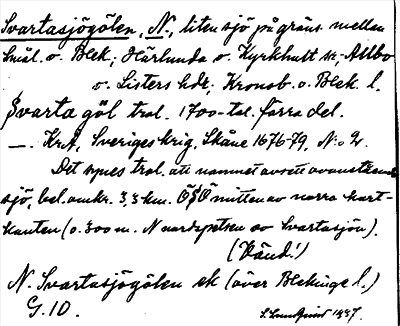 Svartasjögölen, N., liten sjö på gräns. mellan
Smål. o. Blek.; Härlunda o. Kyrkhult sk.; Allbo
o. Listers hdr; Kronob. o. Blek. l.
Svarta göl trol. 1700-tal. förra del.
—. KrA, Sveriges krig. Skåne 1676-79, N:o 2.
Det synes trol. att namnet avsett ovanstående
sjö, bel. omkr. 3,3 km. ÖSÖ mitten av norra kart-
kanten (o. 300 m. N nordspetsen av Svartasjön).
(Vänd!)
N. Svartasjögölen ek (över Blekinge l.)
G. 10.
S. Lundqvist 1937.